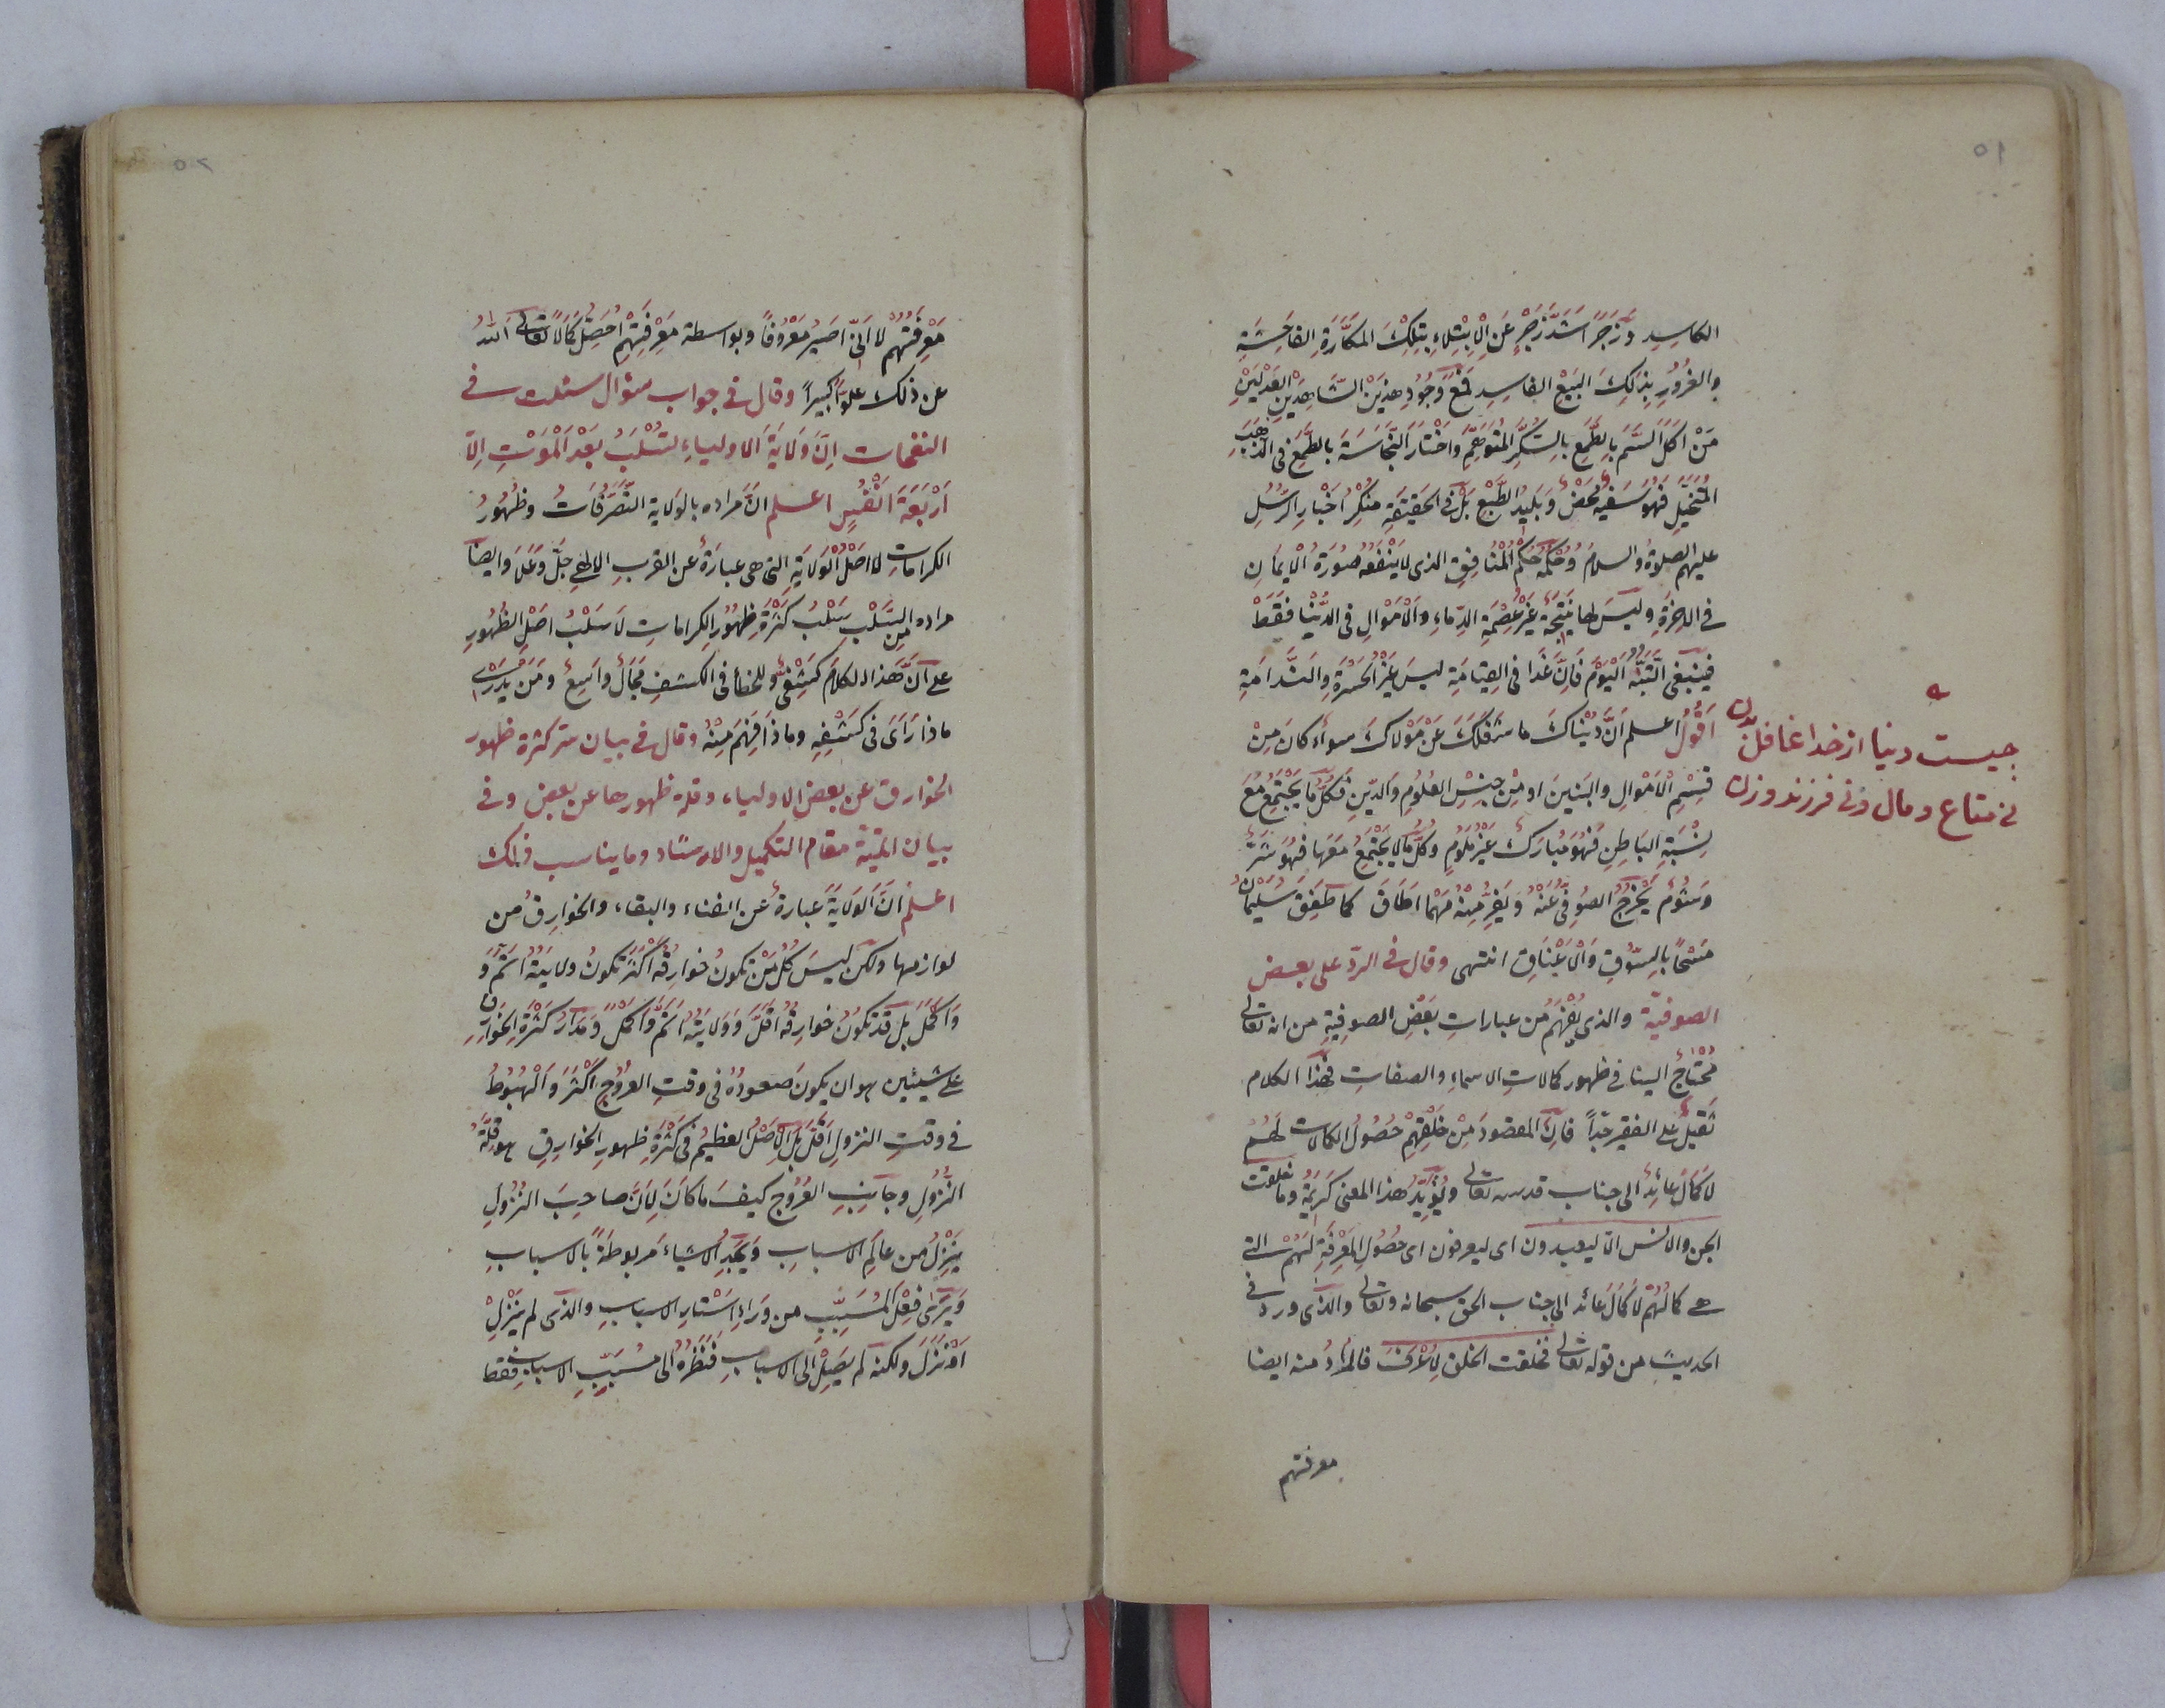 ٥١
الكاسِدِ وَزَجَرَ اَشَدَّ زَجْرٍ عَنِ الْاِبْتِلاءِ بِتِلْكَ المكَّارَةِ الفاحِشَةِ
والغُرُورِ بِذلِكَ البَيْعِ الفاسِدِ فَمَعَ وُجُودِ هذَيْنِ الشَّاهِدَيْنِ العَدْلَيْنِ
مَنْ اَكَلَ السَّمَّ بِالطَّمَعِ بِالسُّكَّرِ المُتَوَهَّمِ وَاخْتَارَ النَّجَاسَةَ بالطَّمَعِ فى الذَّهَبِ
المُتَخَيَّلِ فَهُوَ سَفِيهٌ مَحْضٌ وَبَلِيدُ الطَّبْعِ بَلْ فى الحَقِيقَةِ مُنْكِرُ اَخْبارِ الرُّسُلِ
عليهم الصلوةُ والسلامُ وَحُكْمُهُ حُكْمُ الْمُنافِقِ الذى لا يَنْفَعُهُ صُورَةُ الْايمَانِ
فى الاخِرَةِ وليسَ لها نَتِيجَةٌ غَيْرُ عِصْمَةِ الدِّماءِ والْاَمْوَالِ فى الدُّنْيا فَقَطْ
فَيَنْبَغِى التَّنَبُّهُ الْيَوْمَ فَاِنَّ غَدًا فى القِيَامَةِ ليسَ غَيْرُ الحَسْرَةِ والنَّدَامَةِ
اَقُولُ اعلم اَنَّ دُنْيَاكَ ما شَغَلَكَ عَنْ مَوْلاكَ سواءٌ كانَ مِنْ
قِسْمِ الْاَمْوَالِ والبَنِينَ او مِنْ جِنْسِ العُلُومِ والدِّينِ فَكُلُّ ما يَجْتَمِعُ مَعَ
نِسْبَةِ البَاطِنِ فَهُوَ مُبارَكٌ غَيْرُ مَلُومٍ وَكُلُّ ما لا يَجْتَمِعُ مَعَها فهُوَ شَرٌّ
وَشُومٌ يَخْرُجُ الصُوفِىُّ عَنْهُ وَيَفِرُّ مِنْهُ مَهْما اَطَاقَ كما طَفِقَ سُلَيْمَانُ
مَسْحًا بِالسُّوقِ وَالْاَعْنَاقِ انتهى وقال فى الردّ على بعض
الصوفيّة والذى يُفْهَمُ من عباراتِ بَعْضِ الصوفِيَّةِ من انه تعالى
مُحْتاجٌ الينا فى ظهور كمالاتِ الاسماءِ والصفاتِ فهذا الكلام
ثَقِيلٌ على الفقير جِدّاً فان المقصودَ مِنْ خَلْقِهِمْ حُصُولُ الكمالات لهم
لا كَمَالٌ عائِدٌ الى جناب قدسه تعالى ويُؤَيِّدُ هذا المعنى كَرِيمَةُ وما خلقت
الجن والانس الّا ليعبدون اى ليعرفون اى حُصُولُ المَعْرِفَةِ لَهُمْ التى
هى كمالُهُمْ لا كَمَالٌ عائد الى جناب الحق سبحانه وتعالى والذى ورد فى
الحديث من قوله تعالى فخلقت الخلق لِاُعْرَفَ فالمرادُ منه ايضا
معرفتهم
چیست دنیا از خدا غافل بدن
نى متاع ومال ونى فرزند وزن
٥٢
مَعْرِفَتُهُمْ لا اَنِّى اَصِيرُ مَعْرُوفًا وبواسطة مَعْرِفَتِهِمْ اُحَصِّلُ كَمَالًا تعالى اللّهُ
عن ذلك علوّاً كبيراً وقال فى جواب سؤال سئلت فى
النفحات اِنَّ وَلَايَةَ الاولياءِ تُسْلَبُ بَعْدَ الْمَوْتِ اِلّا
اَرْبَعَةَ اَنْفُسٍ اعلم انَّ مراده بالوَلاية التَّصَرُّفَاتُ وظُهُورُ
الكراماتِ لا اَصْلُ الْوَلَايَةِ التى هى عبارَةٌ عن القربِ الالهى جَلَّ وَعَلَا وايضا
مراده من السَّلْبِ سَلْبُ كَثْرَةِ ظهُورِ الكراماتِ لَا سَلْبُ اصْلِ الظُهُورِ
على اَنَّ هَذا الكلامَ كَشْفِىٌّ وللخطأ فى الكشفِ مَجَالٌ واسِعٌ وَمَنْ يَدْرِى
ماذا رَاَى فى كَشْفِهِ وماذا فَهِمَ مِنْهُ وقال فى بيان سر كثرة ظهور
الخوارق عن بعض الاولياء وقلة ظهورها عن بعض وفى
بيان اتمّية مقام التكميل والارشاد وما يناسب ذلك
اعلم انَّ الْوَلَايَةَ عبارةٌ عن الفناء والبقاء والخوارقُ من
لوازمها ولكن ليسَ كُلُّ مَنْ تكونُ خوارِقُهُ اَكْثَرَ تكونُ ولايَتُهُ اَتَمَّ وَ
وَاكْمَلَ بل قد تكونُ خوارقُهُ اَقَلَّ وَوَلايَتُهُ اَتَمَّ وَاَكْمَلَ وَمَدَارُ كَثْرَةِ الخَوارِقِ
على شيئين هو ان يكونَ صعودُهُ فى وقتِ العُرُوجِ اَكْثَرَ وَالْهُبُوطُ
فى وقتِ النزولِ اَقَلَّ بل الْاَصْلُ العظيمُ فى كَثْرَةِ ظهورِ الخوارقِ هو قِلَّةُ
النُّزُولِ وجانِبِ العُرُوجِ كيفَ ما كانَ لِاَنَّ صاحبَ النُزُولِ
يَنْزِلُ من عالَمِ الاسبابِ وَيَجِدُ الاشياءَ مَربوطَةً بالاسبابِ
وَيَرَى فِعْلَ المُسَبِّبِ من وَراءِ اَسْتارِ الاسبابِ والذى لم يَنْزِلْ
اَوْ نَزَلَ ولكنه لم يَصِلْ الى الاسبابِ فَنَظَرُهُ الى مُسَبِّبِ الاسبابِ فقط